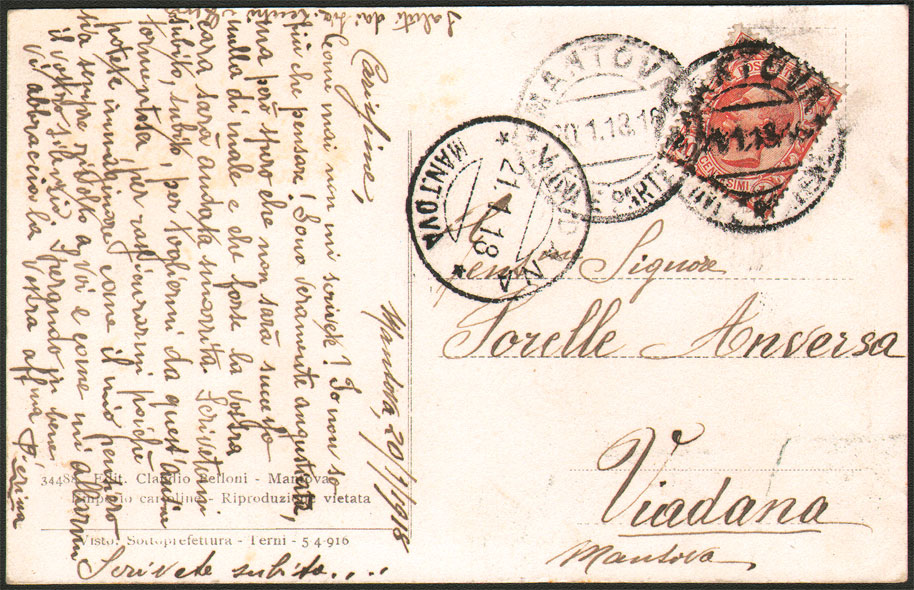 Mantova, 20/1/1918
Carissime,
Come mai non mi scrivete? Io non so
più che pensare! Sono veramente angustiata,
ma però spero che non sarà successo
nulla di male e che forse la vostra
cara sarà andata smarrita. Scrivetemi
subito, subito, per togliermi da quest'ansia
per rassicurarmi poiché
potete immaginare come il mio pensiero
sia sempre rivolto a voi e come mi allarmi
il vostro silenzio. Sperando in bene
vi abbraccio la vostra aff.ma Pierina
Scrivete subito....
Saluti dai
34488 Edit. Claudio Belloni - Mantova
Emporio cartoline - Riproduzione vietata
Visto: Sottoprefettura - Terni - 5 4 916
MANTOVA
20.1.18.16
PARTENZE
MANTOVA
20.1.18.16
VIADANA
* 21.1.18 *
MANTOVA
CENTESIMI
Signore
Sorelle Anversa
Viadana
Mantova